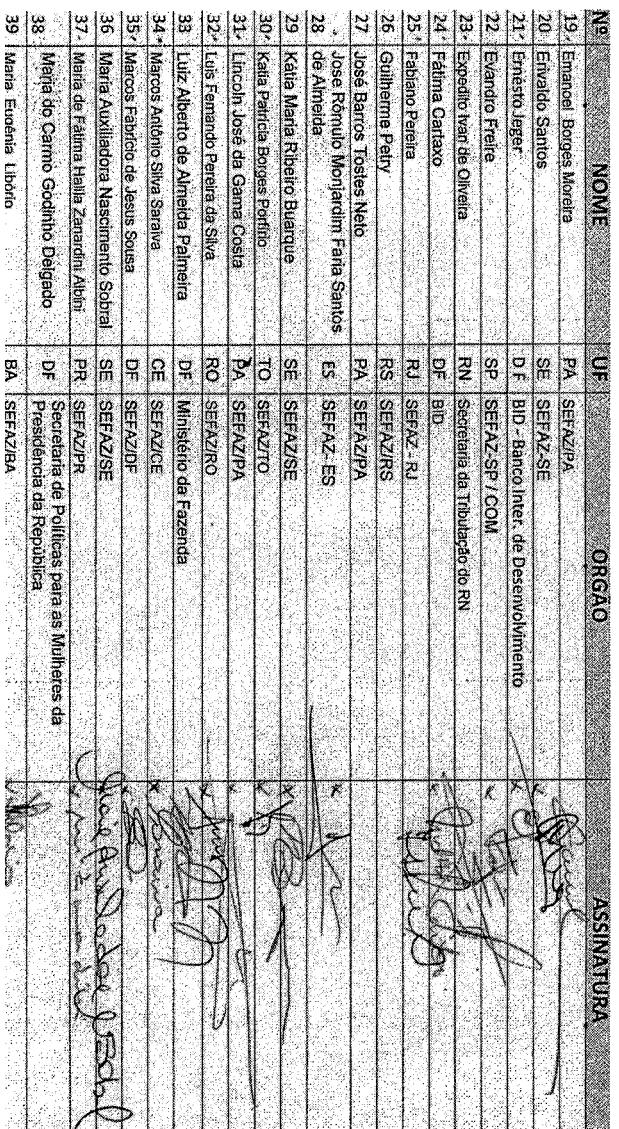 Nº NOME UF ORGÃO ASSINATURA
19 Emanoel Borges Moreira PA SEFAZ/PA
20 Erivaldo Santos SE SEFAZ-SE
21 Ernesto Jeger DF BID - Banco Inter. de Desenvolvimento
22 Evandro Freire SP SEFAZ-SP / COM
23 Expedito Ivan de Oliveira RN Secretaria da Tributação do RN
24 Fátima Cartaxo DF BID
25 Fabiano Pereira RJ SEFAZ - RJ
26 Guilherme Petry RS SEFAZ/RS
27 José Barros Tostes Neto PA SEFAZ/PA
28 Jose Rômulo Monjardim Faria Santos
de Almeida ES SEFAZ - ES
29 Kátia Maria Ribeiro Buarque SE SEFAZ/SE
30 Katia Patrícia Borges Porfírio TO SEFAZ/TO
31 Lincoln José da Gama Costa PA SEFAZ/PA
32 Luis Fernando Pereira da Silva RO SEFAZ/RO
33 Luiz Alberto de Almeida Palmeira DF Ministério da Fazenda
34 Marcos Antônio Silva Saraiva CE SEFAZ/CE Saraiva
35 Marcos Fabrício de Jesus Sousa DF SEFAZ/DF
36 Maria Auxiliadora Nascimento Sobral SE SEFAZ/SE
37 Maria de Fátima Halila Zanardini Albini PR SEFAZ/PR
38 Maria do Carmo Godinho Delgado DF Secretaria de Políticas para as Mulheres da
Presidência da República
39 Maria Eugênia Libório BA SEFAZ/BA